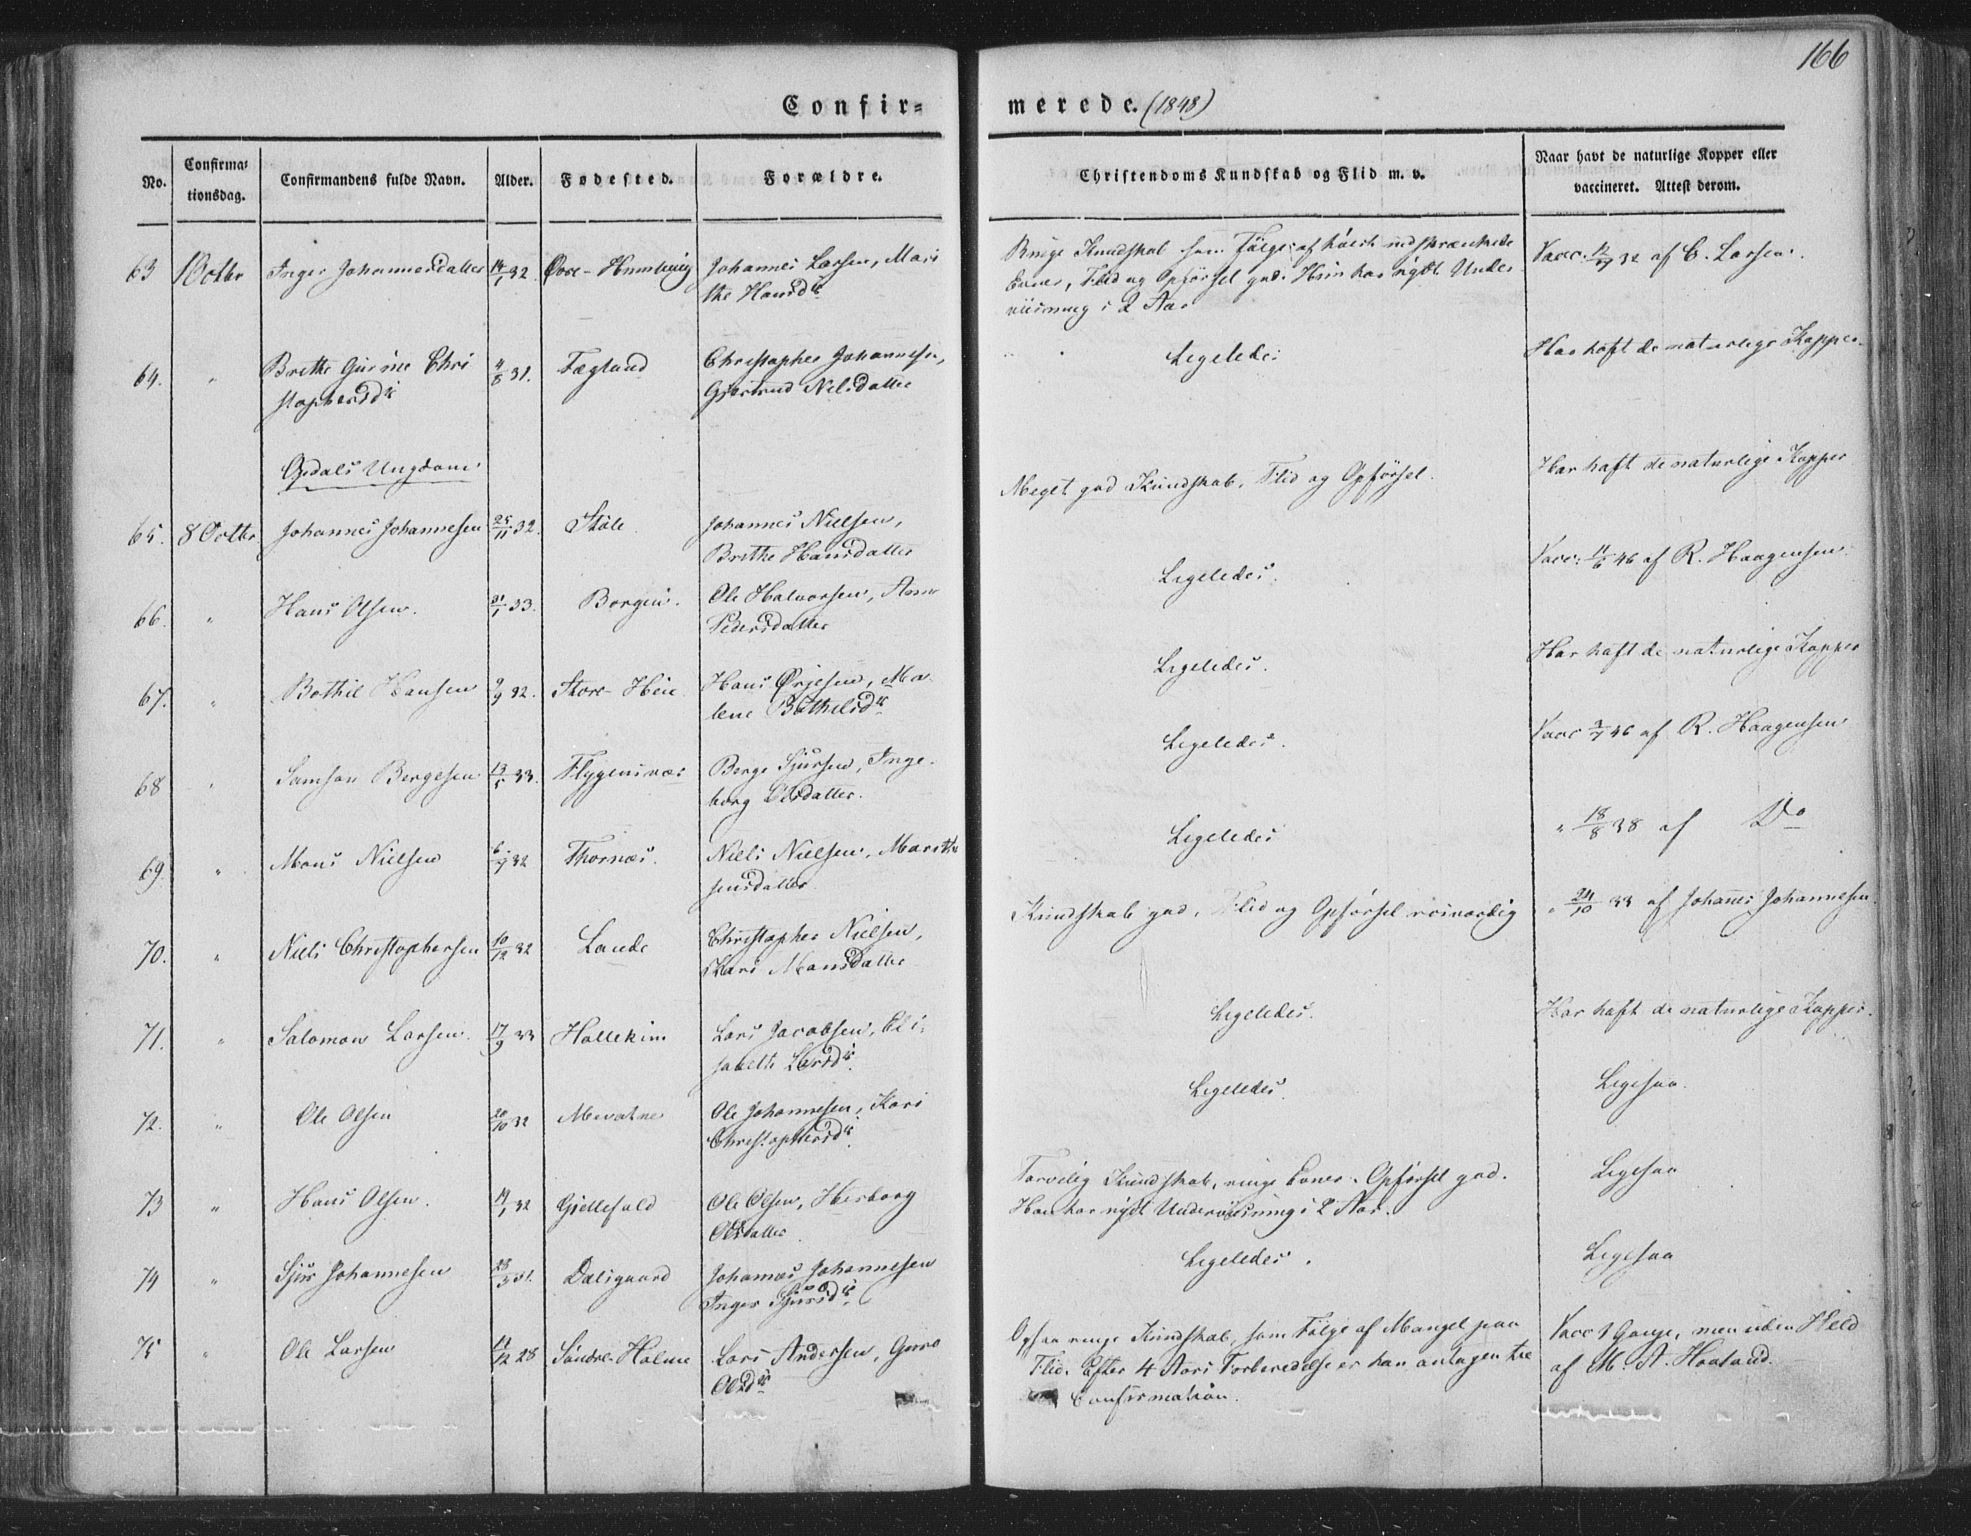 166
Confir=
merede. (1848)
No.
Confirma=
tionsdag.
Confirmandens fulde Navn.
Alder.
Fødested.
Forældre.
Christendoms Kundskab og Flid m. v.
Naar havt de naturlige Kopper eller
vaccineret. Attest derom.
63 1 Octbr Inger Johannesdatter 14/1 32. Johannes Larsen, Mari
the Hansdtr
Ringe Kundskab som Følge af høist indskrænkede
Evner, Flid og Opførsel god. Hun har nydt Under
viisning i 2 Aar
Vacc. 12/9 32 af C. Larsen.
64. " Brethe Gurine Chri 4/8 31. Fægland Christopher Johannesen,
stophersdtr Gjertrud Nilsdatter
Ligeledes
Har haft de naturlige Kopper.
Opdals Ungdom
65. 8 Octbr Johannes Johannesen 25/11 32. Støle Johannes Nielsen,
Brithe Hansdatter
Meget god Kundskab, Flid og Opførsel.
Har haft de naturlige Kopper
66. " Hans Olsen. 21/1 33. Borgen. Ole Halvorsen, Anne
Pedersdatter
Ligeledes.
Vacc: 11/6 46 af R. Haagensen
67. " Bothil Hansen 9/9 32. Store- Hans Ørjesen, Ma
lene Bothilsdtr
Ligeledes.
Har haft de naturlige Kopper
68 " Samson Bergesen 13/5 33. Flygensvær Berge Sjursen, Inge
borg Olsdatter.
Ligeledes.
Vacc 3/7 46 af R. Haagensen
69. " Mons Nielsen 6/7 32 Thornæs. Niels Nielsen, Marithe
Jensdatter
Ligeledes
" 18/8 38 af Do
70. " Niels Christophersen 10/12 32 Lande Christopher Nielsen,
Kari Monsdatter
Kundskab god, Flid og Opførsel roisværdig
" 24/10 33 af Johanes Johannesen.
71. " Salomon Larsen. 17/9 33 Hollekim Lars Jacobsen, Eli
sabeth Larsdtr.
Ligeledes.
Har haft de naturlige Kopper.
72. " Ole Olsen 20/10 32 Mevatne Ole Johannesen, Kari
Christophersdtr.
Ligeledes.
Ligesaa.
73 " Hans Olsen. 14/1 32 Gjellefald Ole Olsen, Herborg
Olsdatter
Tarvelig Kundskab, ringe Evner. Opførsel god.
Han har nydt Underviisning i 2 Aar.
Ligesaa
74 " Sjur Johannesen 28/3 31. Dalsgaard Johannes Johannesen
Inger Sjursdtr.
Ligeledes.
Ligesaa
75 " Ole Larsen 14/12 28 Søndre-Holme Lars Andersen, Guro
Olsdtr
Ogsaa ringe Kundskab, som Følge af Mangel paa
Flid. Efter 4 Aars Forberedelse er han antagen til
Confirmation.
Vacc 1 Gang, men uden Held
af M. A. Haaland.